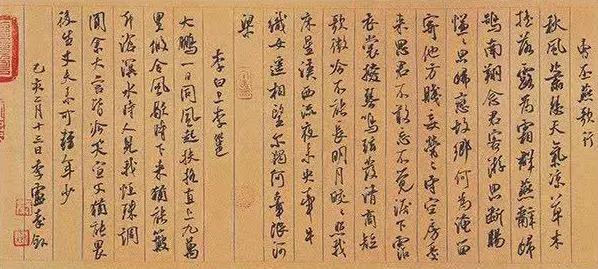 曹丕燕歌行
秋風蕭瑟天氣涼草木
搖落露為霜群燕辭歸
鵠南翔念君客遊思斷腸
慊〻思歸戀故鄉何為淹留
寄他方賤妾煢〻守空房憂
來思君不敢忘不覺淚下霑
衣裳援琴鳴絃發清商短
歌微吟不能長明月皎〻照我
床星漢西流夜未央牽牛
織女遙相望爾獨何辜限河
梁
李白上李邕
大鵬一日同風起扶搖直上九萬
里假令風歇時下來猶能簸
却滄溟水時人見我恒殊調
聞余大言皆冷笑宣父猶能畏
後生丈夫未可輕年少
己亥二月十三日李